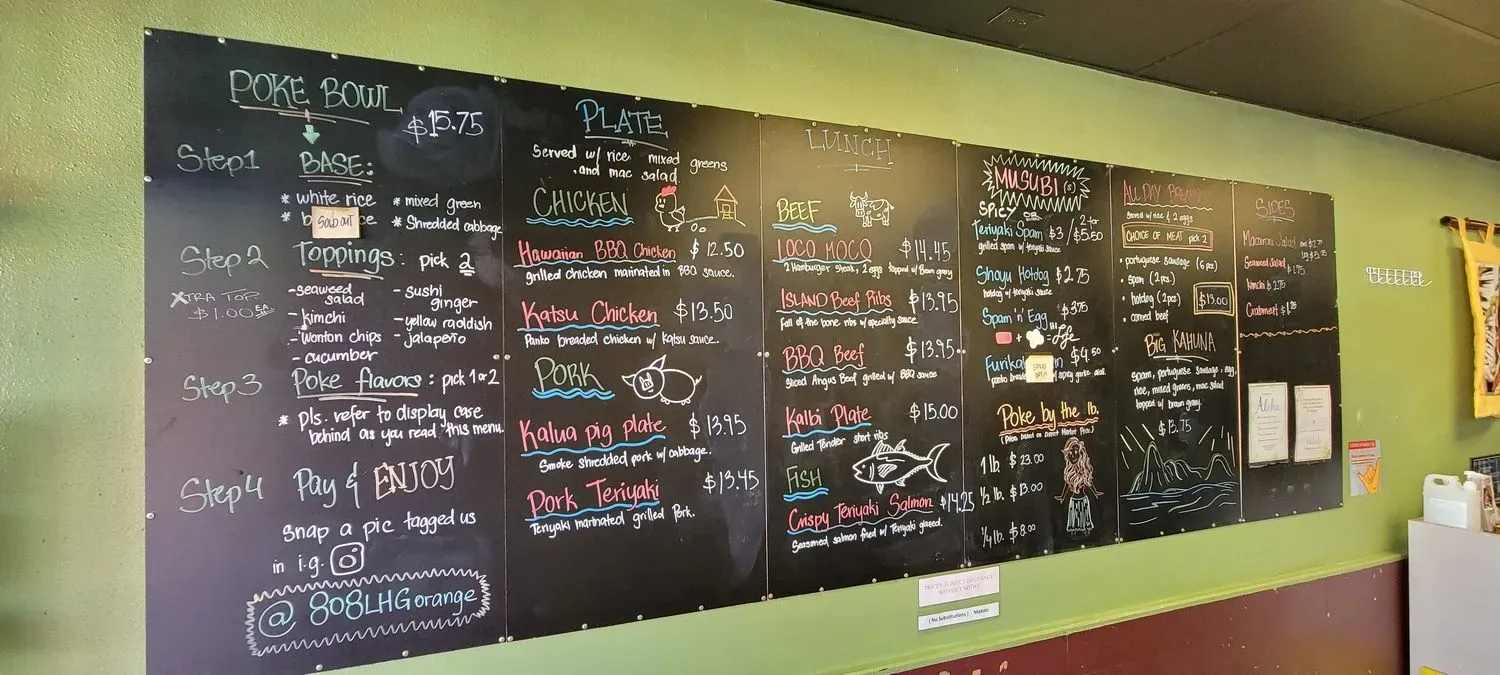 POKE BOWL
$15.75
Step 1 BASE:
* white rice * mixed green
SOLD OUT
* Shredded cabbage
Step 2 Toppings: pick 2
XTRA TOP.
$1.00 EA
-seaweed salad
-kimchi
-wonton chips
-cucumber
-sushi ginger
-yellow raddish
-jalapeño
Step 3 Poke flavors: pick 1 or 2
* pls. refer to display case
behind as you read this menu.
Step 4 Pay & ENJOY
Snap a pic tagged us
in i.g.
@808LHGorange
PLATE
Served w/ rice mixed greens
and mac salad.
CHICKEN
Hawaiian BBQ Chicken $12.50
grilled chicken marinated in BBQ sauce.
Katsu Chicken $13.50
Panko breaded chicken w/ katsu sauce.
PORK
Kalua pig plate $13.95
Smoke shredded pork w/ cabbage.
Pork Teriyaki $13.45
Teriyaki marinated grilled Pork.
LUNCH
BEEF
LOCO MOCO $14.45
2 Hamburger steak, 2 eggs topped w/ Brown gravy
ISLAND Beef Ribs $13.95
Fall of the bone ribs w/ specialty sauce
BBQ Beef $13.95
Sliced Angus Beef grilled w/ BBQ sauce
Kalbi Plate $15.00
Grilled Tender short ribs
FISH
Crispy Teriyaki Salmon $14.25
Seasoned salmon fried w/ Teriyaki glazed.
MUSUBI (s)
SPICY OR
Teriyaki Spam $3 / 2 for $5.50
grilled spam w/ teriyaki sauce
Shoyu Hotdog $2.75
hotdog w/ teriyaki sauce
Spam 'n' Egg $3.75
$4.50
Poke by the lb.
(Price based on current Market Price)
1 lb. $23.00
1/2 lb. $13.00
1/4 lb. $8.00
ALL DAY
served w/ rice & 2 eggs
CHOICE OF MEAT pick 2
• portuguese sausage (6 pcs)
• spam (2 pcs)
• hotdog (2 pcs)
• corned beef
$13.00
BIG KAHUNA
spam, portuguese sausage, egg,
rice, mixed greens, mac salad
topped w/ brown gravy.
$13.75
SIDES
Macaroni Salad
Seaweed Salad $1.75
Kimchi
Crabmeat
Aloha
PRICES SUBJECT TO CHANGE
WITHOUT NOTICE
( No Substitutions ) Mahalo